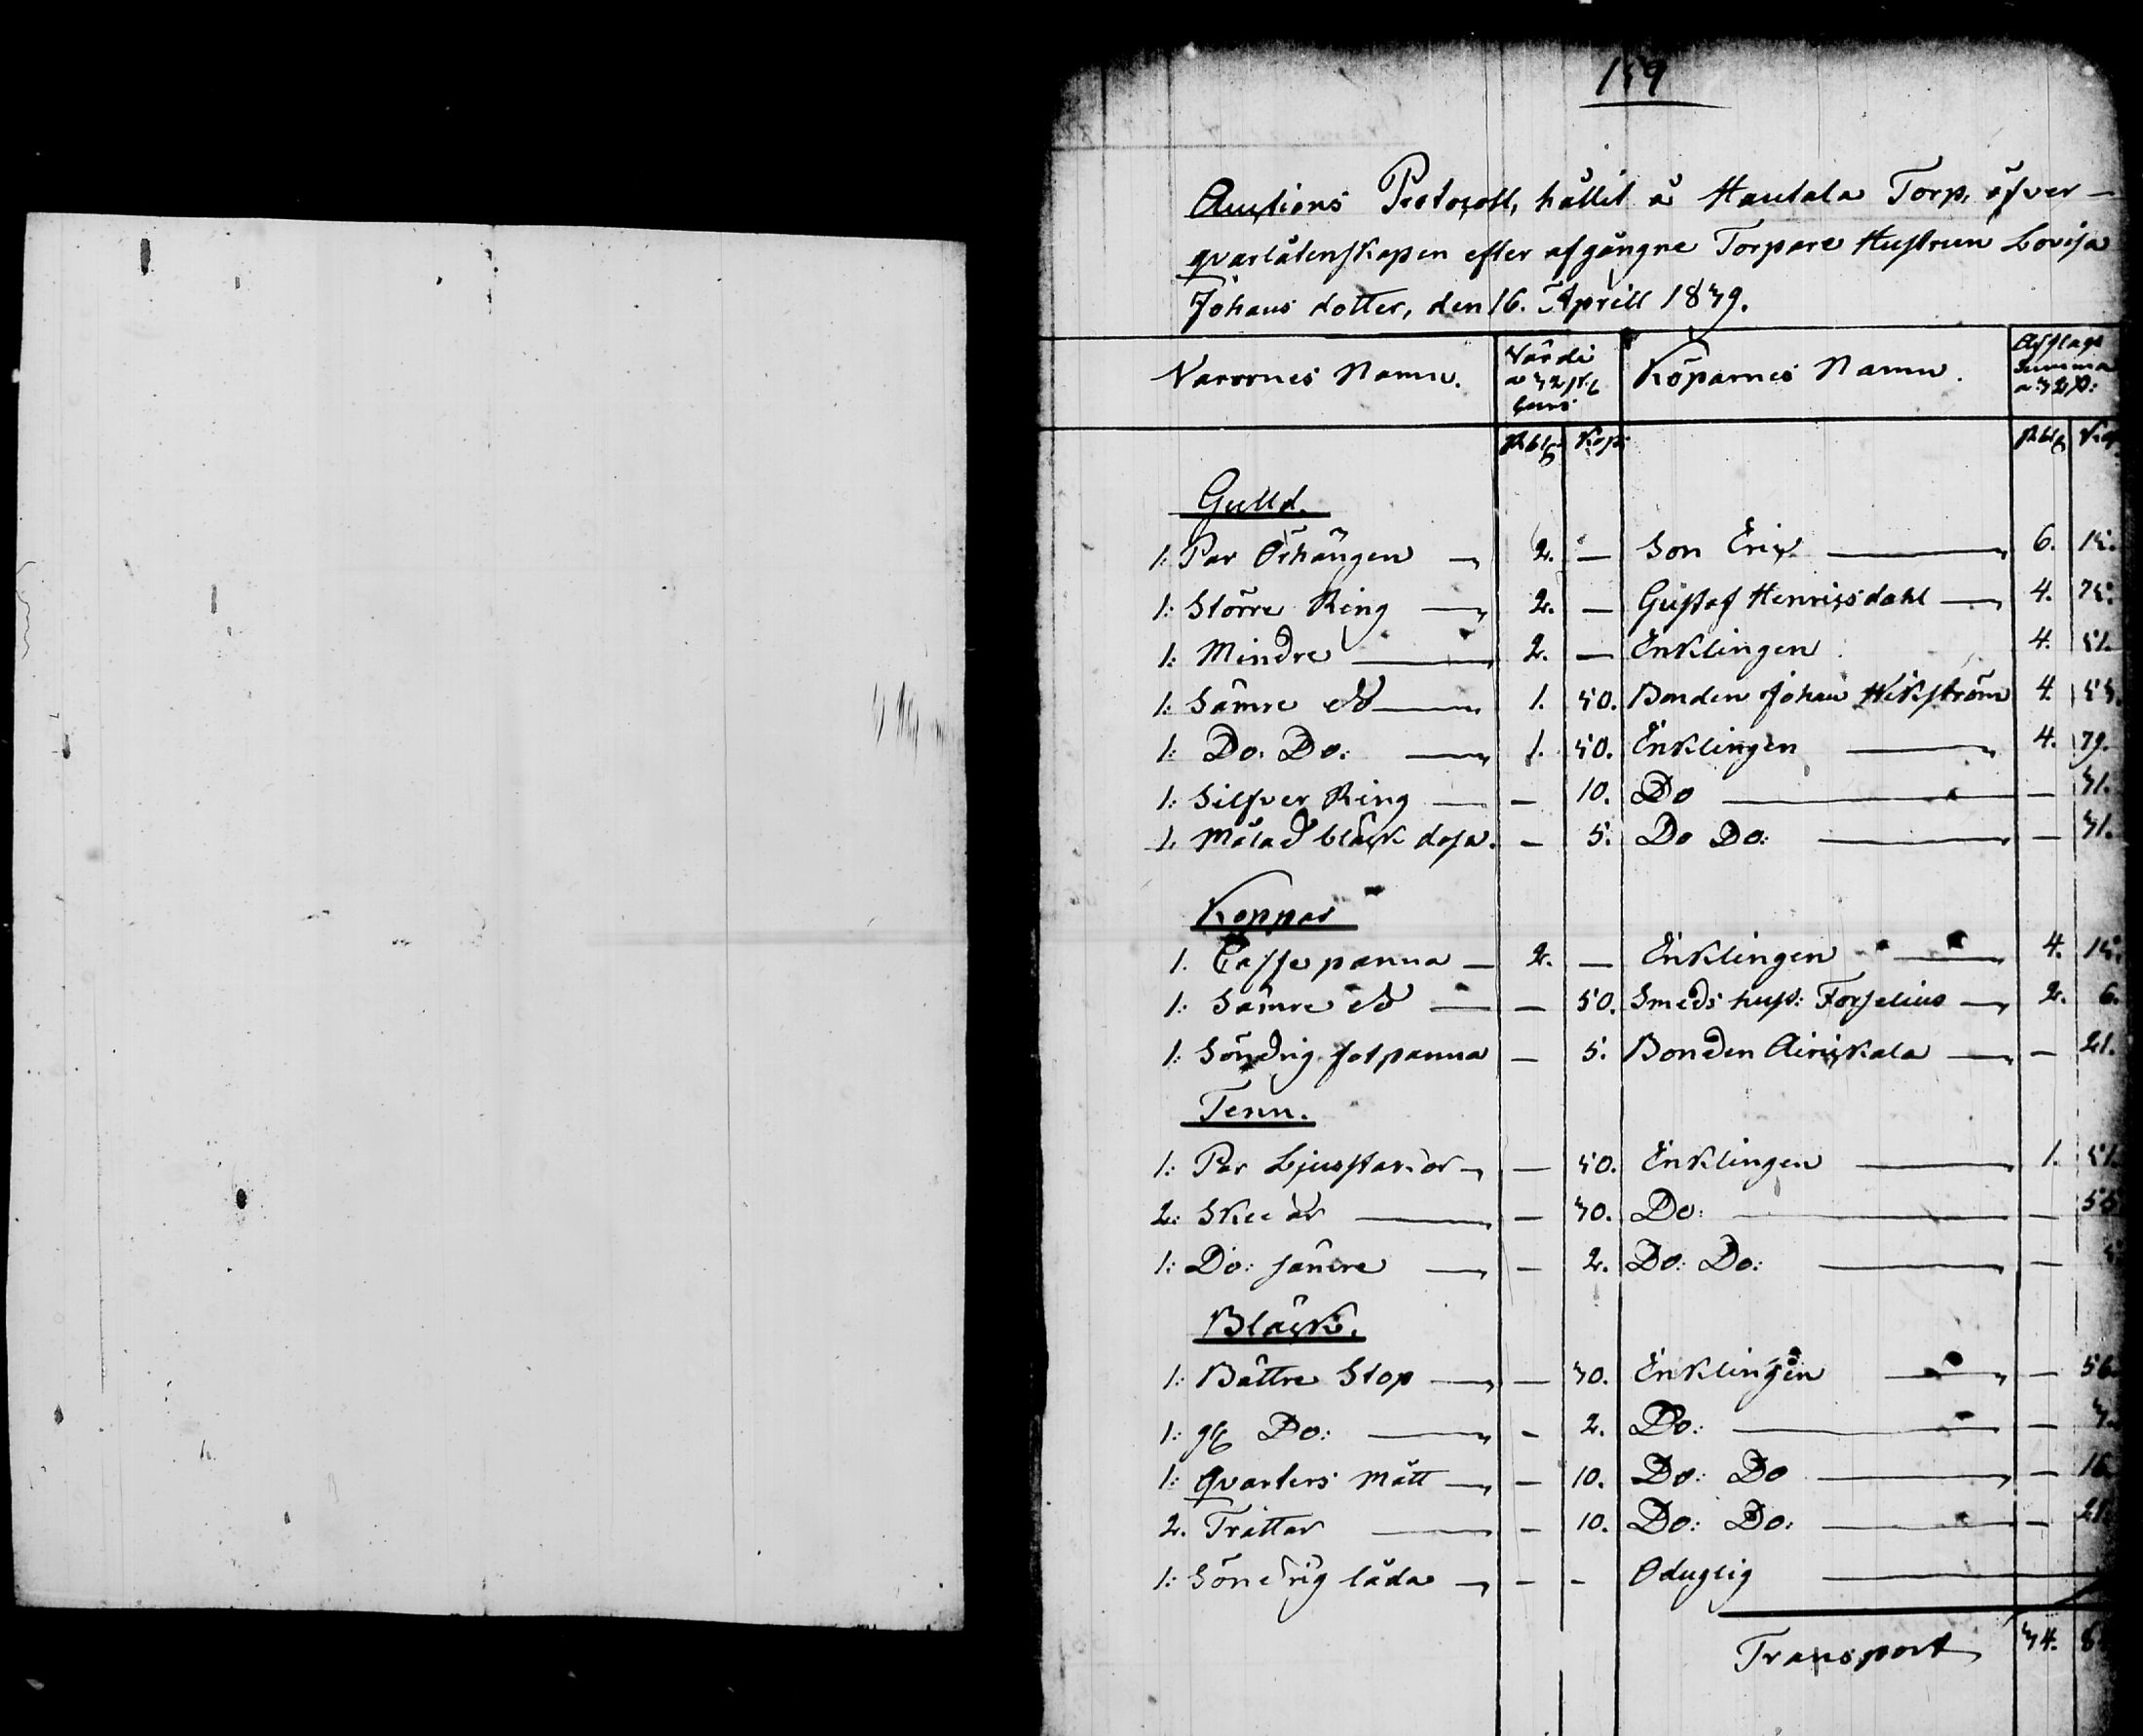 159
Auctions Protocoll, hållit å Hautala Torp, öfver
qvarlåtenskapen efter afgångne Torpare Hustrun Lovisa
Johans dotter, den 16. Aprill 1839.
Varornes Namn. Värde Köparnes Namn. Afslags Summa
Rblr Kop: Rblr Kop
Gulld.
1: Par Örhängen 2. — Son Eric 6. 15.
1: Större Ring 2. — Gustaf Henricsdahl 4. 75.
1: Mindre 2. — Enklingen 4. 51.
1: Sämre do 1. 50. Bonden Johan Wikström 4. 55.
1: Do. Do: 1. 50. Enklingen 4. 79.
1: Silfver Ring — 10. Do — 31.
1. Målad bläck dosa. — 5. Do Do: — 31.
Koppar
1. Caffe panna — 2. — Enklingen 4. 15.
1: Sämre do — 50. Smeds hust: Forselius 2. 6.
1: Söndrig fotpanna — 5. Bonden Airickala — 21.
Tenn.
1: Par Ljusstakar — 50. Enklingen 1. 51.
2: Skedar — 30. Do: — 55
1: Do: sämre — 2. Do: Do: — 5
Bläck.
1: Bättre Stop — 30. Enklingen — 56.
1: Do: — 2. Do: — 3.
1: Qvarters Mått — 10. Do: Do — 16
2. Trattar — 10. Do: Do: — 21.
1: Söndrig låda — - - Oduglig
Transport 34.